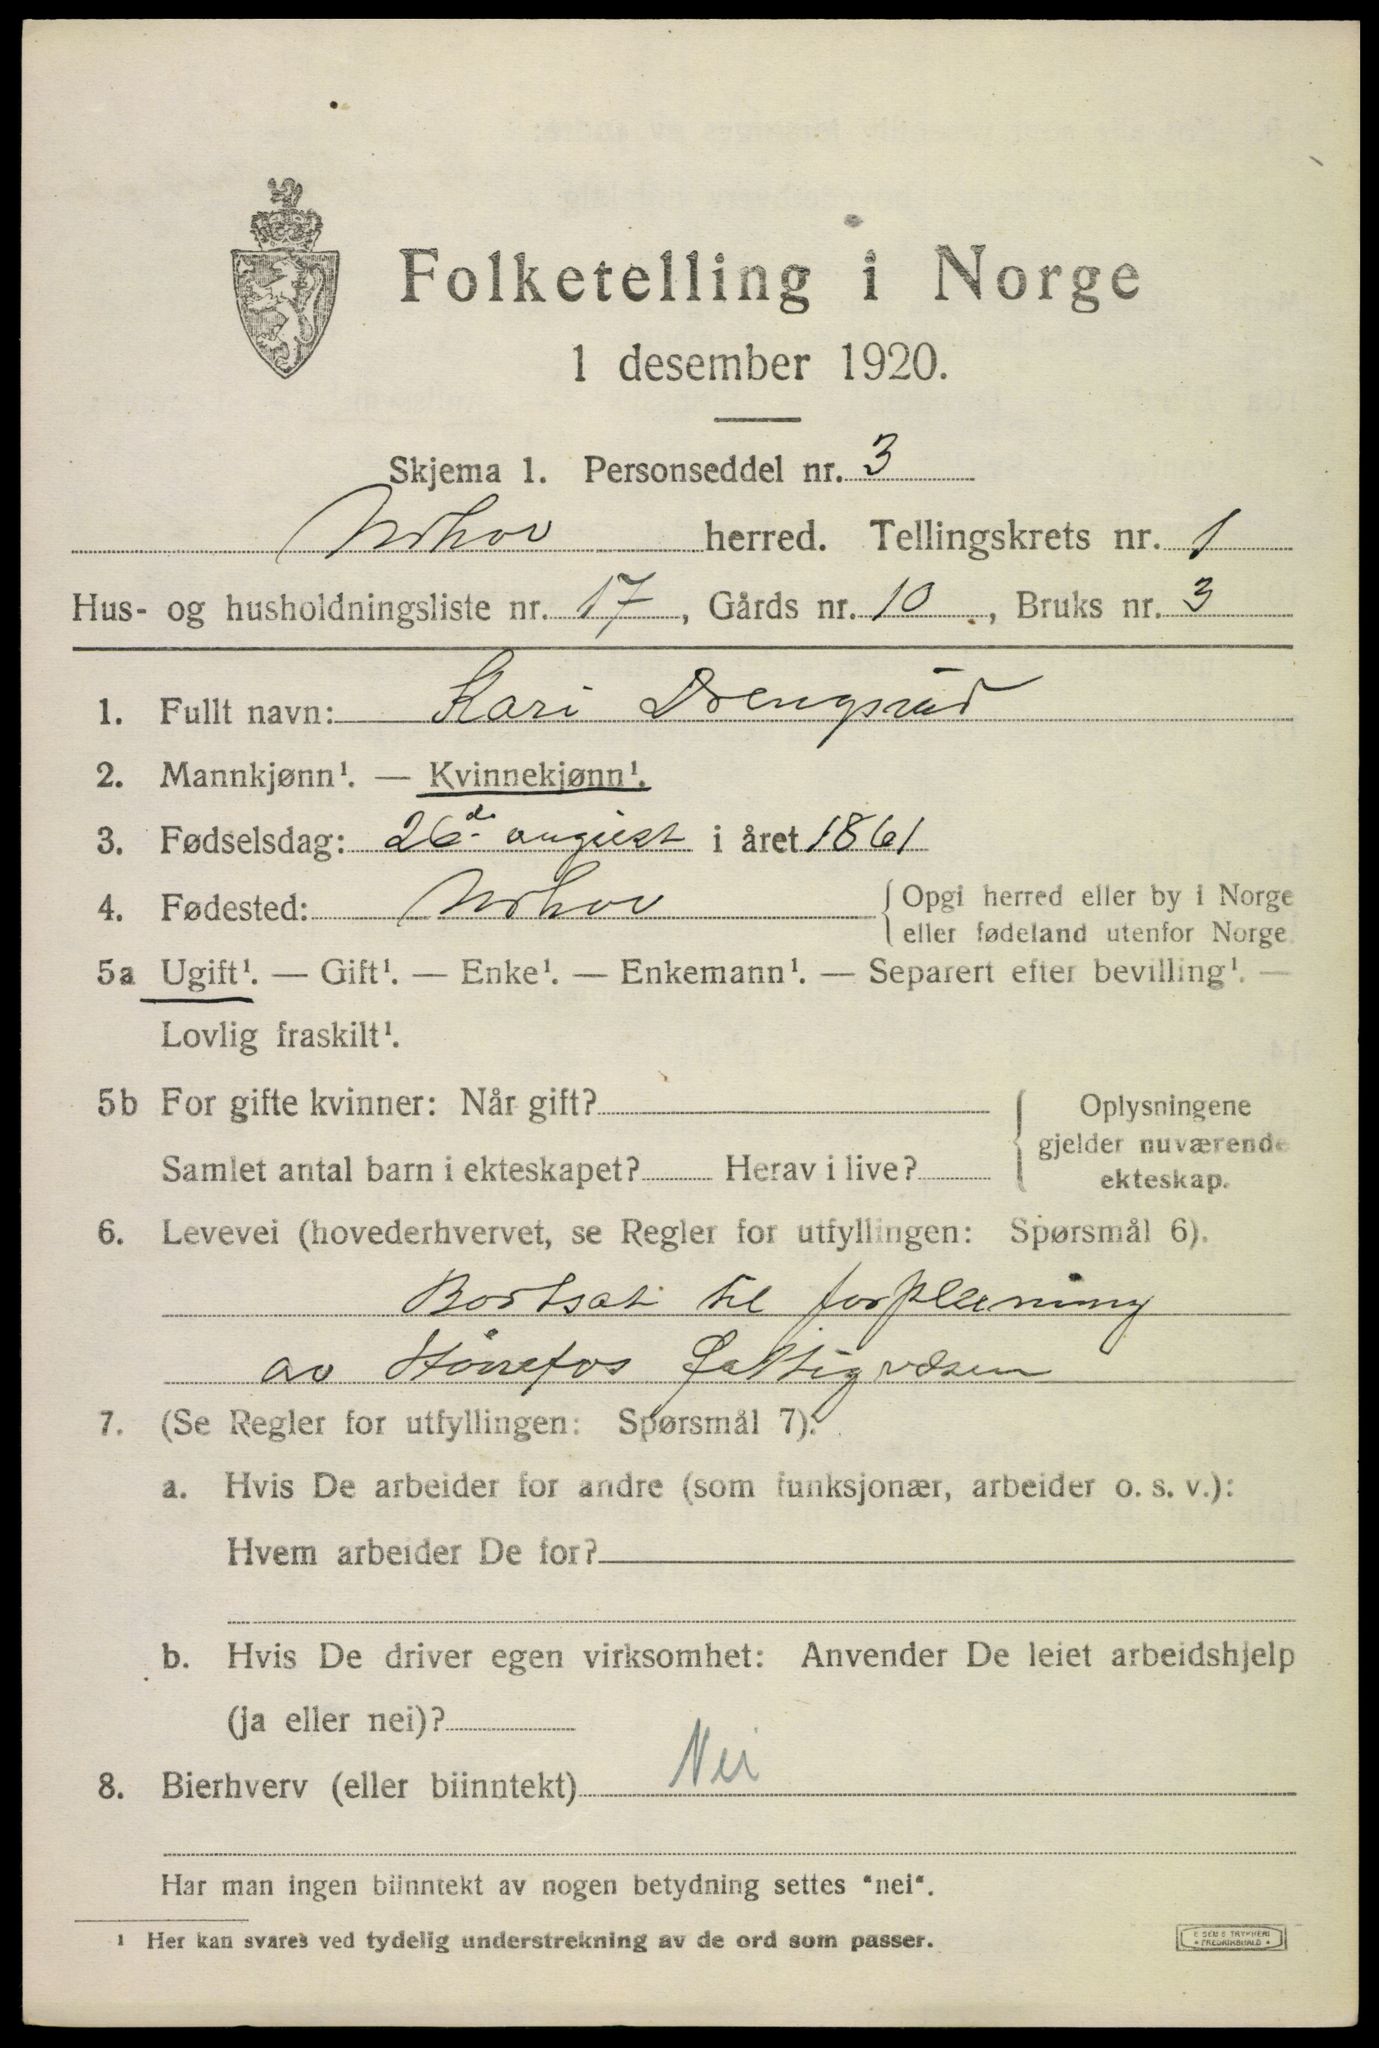 Folketelling i Norge
1 desember 1920.
Skjema 1. Personseddel nr. 3
Norhov herred. Tellingskrets nr. 1
Hus- og husholdningsliste nr. 17, Gårds nr. 10, Bruks nr. 3
1. Fullt navn: Kari Drengsrud
2. Mannkjønn¹. — Kvinnekjønn¹.
3. Fødselsdag: 26de august i året 1861
4. Fødested: Norhov {Opgi herred eller by i Norge
eller fødeland utenfor Norge
5a Ugift¹. — Gift¹. — Enke¹. — Enkemann¹. — Separert efter bevilling¹. —
Lovlig fraskilt¹.
5b For gifte kvinner: Når gift?
Samlet antal barn i ekteskapet? Herav i live?
Oplysningene
gjelder nuværende
ekteskap.
6. Levevei (hovederhvervet, se Regler for utfyllingen: Spørsmål 6).
Bortsat til forpleining
av Hønefos fattigvæsen
7. (Se Regler for utfyllingen: Spørsmål 7):
a. Hvis De arbeider for andre (som funksjonær, arbeider o. s. v.):
Hvem arbeider De for?
b. Hvis De driver egen virksomhet: Anvender De leiet arbeidshjelp
(ja eller nei)?
8. Bierhverv (eller biinntekt) Nei
Har man ingen biinntekt av nogen betydning settes "nei".
¹ Her kan svares ved tydelig understrekning av de ord som passer.
E SEM'S TRYKKERI
FREDRIKSHALD